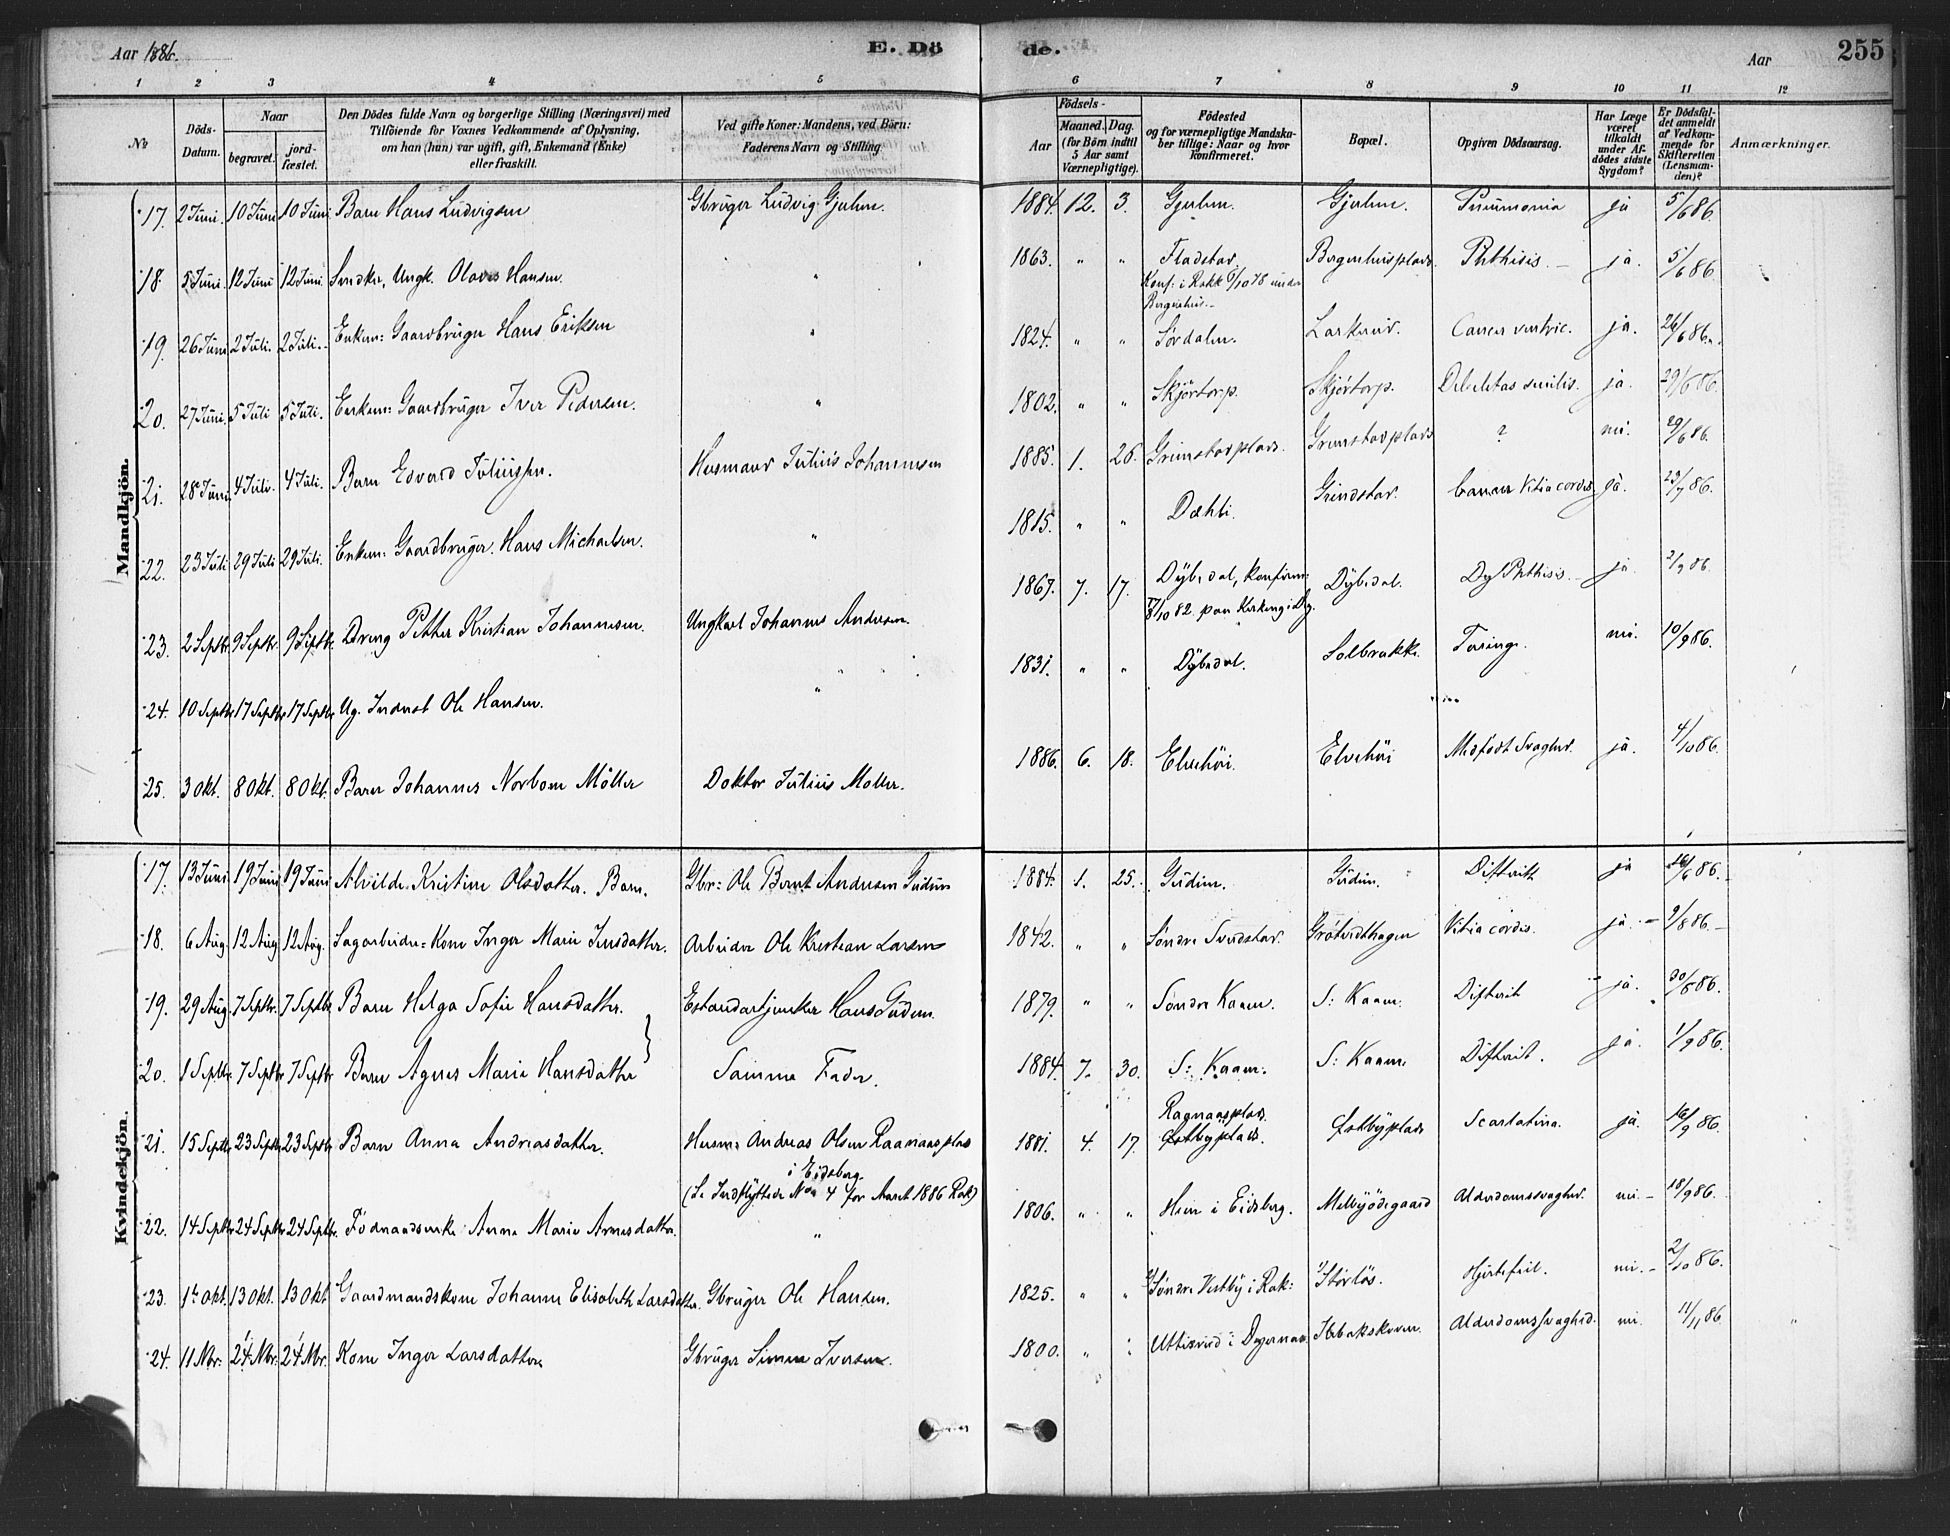 Aar 1886. E. Dö de. Aar 255
1 2 3 4 5 6 7 8 9 10 11 12
No Döds-Datum. Naar begravet. jordfæstet. Den Dödes fulde Navn og borgerlige Stilling (Næringsvei) med Tilföiende for Voxnes Vedkommende af Oplysning, om han (hun) var ugift, gift, Enkemand (Enke) eller fraskilt. Ved gifte Koner: Mandens, ved Börn: Faderens Navn og Stilling Födsels- Aar Maaned. Dag. (for Börn indtil 5 Aar samt Værnepligtige). Födested og for værnepligtige Mandskaber tillige: Naar og hvor konfirmeret. Bopæl. Opgiven Dödsaarsag. Har Læge været tilkaldt under Afdödes sidste Sygdom? Er Dödsfaldet anmeldt af Vedkommende for Skifteretten (Lensmanden)? Anmærkninger.
Mandkjön.
17. 2 Juni. 10 Juni 10 Juni Barn Hans Ludvigsen Gbruger Ludvig Gjulem. 1884. 12. 3. Gjulem. Gjulem. Pneumonia ja 5/6 86.
18. 5 Juni. 12 Juni 12 Juni. Ungk. Olaves Hansen. " 1863. " " Fladstad. Konf: i Rakk 6/10 78 under Bergenhus.- Bergenhusplads. Phthisis. - ja. 5/6 86
19. 26 Juni 2 Juli. 2 Juli. Enkem: Gaardbruger Hans Eriksen " 1824. " " Sørdalen. Cancer ventric. ja. 26/6 86.
20. 27 Juni. 5 Juli 5 Juli. Enkem: Gaardbruger Iver Pedersen. " 1802. " " Skjörtorp. Skjörtorp. Debilitas senilis. ja. 29/6 86.
21. 28 Juni 4 Juli. 4 Juli. Barn Edvard Juliussen. Husmand Julius Johannesen 1885. 1. 26. Grimstadplads. Grimstadplads ? nei. 29/6 86.
22. 23 Juli 29 Juli 29 Juli. Enkem: Gaardbruger. Hans Michaelsen. " 1815. " " Dæhli. Grindstad. Vitia cordis ja. 23/7 86.
23. 2 Septbr. 9 Septbr. 9 Septbr. Dreng Petter Kristian Johannesen. Ungkarl Johannes Andersen 1867. 7. 17. Dybedal, konfirm: 8/10 82. paa Kirkeng i Dg. Dybedal. Phthisis. - ja. 2/9 86.
24. 10 Septbr 17 Septbr 17 Septbr Ug. Inderst Ole Hansen. " 1831. " " Dybedal. Solbrække. Tæring. nei. 10/9 86.
25. 3 Okt. 8 Okt. 8 Okt. Barn Johannes Norbom Möller Doktor Julius Möller. 1886. 6. 18. Elvehöi. Elvehöi Medfödt Svaghed. ja. 4/10 86.
Kvindekjön.
17. 13 Juni 19 Juni 19 Juni Alvilde Kristine Olsdatter. Barn. Gbr: Ole Bernt Andersen Gudim 1884. 1. 25. Gudim. Gudim. Difterit ja 14/6 86.
18. 6 Aug. 12 Aug 12 Aug. Sagarbeider-Kone Inger Marie Jensdatter. Arbeider Ole Kristian Larsen 1842. " " Söndre Svendstad. Grötvedthagen Vitia cordis. ja. - 9/8 86. -
19. 29 Aug. 7 Septbr. 7 Septbr. Barn Helga Sofie Hansdatter. Estandartjunker Hans Gudim. 1879. " " Söndre Kaaen. S: Kaaen. Difterit ja. 30/8 86.
20. 1 Septbr. 7 Septbr 7 Septbr Barn Agnes Marie Hansdatter Samme Fader. 1884. 7. 30. S: Kaaen. S: Kaaen. Difterit. ja. 1/9 86.
21. 15 Septbr 23 Septbr 23 Septbr Barn Anna Andreasdatter. Husm: Andreas Olsen Raanaasplads i Eidsberg (Se Indflyttede No 4 for Marts 1886 Rak) 1881. 4. 17. Ragnaasplads. Østbyplads. Østbyplads Scarlatina. ja. 16/9 86.
22. 14 Septbr 24 Septbr 24 Septbr. Födraadsenke Anne Marie Arnesdatter. " 1806. " " Hein i Eidsberg. Melbyödegaard Alderdomssvaghed. nei - 18/9 86.
23. 1te Okt. 13 Okt. 13 Okt Gaardmandskone Johanne Elisabeth Larsdatter. Gbruger Ole Hansen. 1825. " " Söndre Vestby i Rak: Störlös. Hjertefeil. nei. - 2/10 86.
24. 11 Nbr: 24 Nbr. 24 Nbr. Kone Inger Larsdatter Gbruger Simen Iversen. 1800. " " i Degernæs Alderdomssvaghed. nei. 11/11 86. "